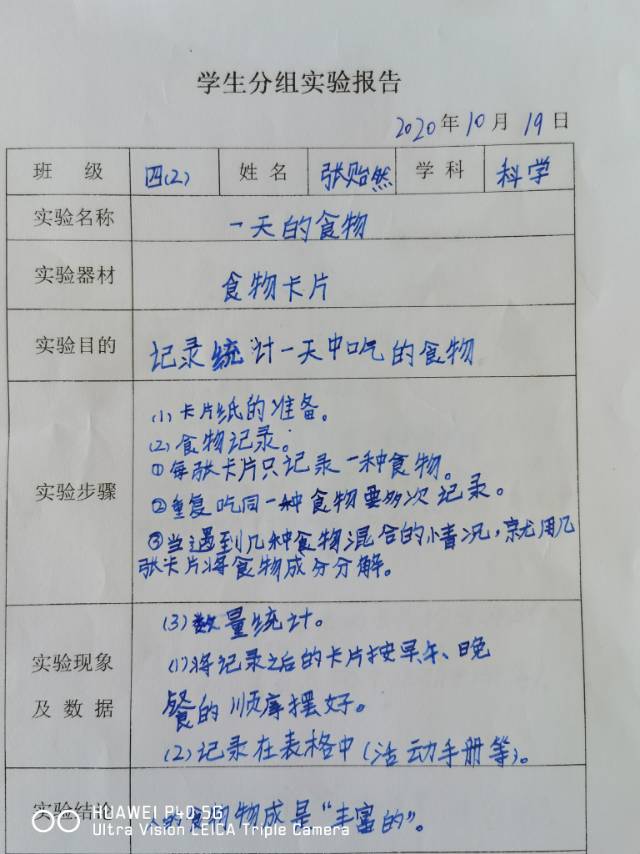 学生分组实验报告
2020年10月19日
班 级 四(2) 姓 名 张贻然 学 科 科学
实验名称 一天的食物
实验器材 食物卡片
实验目的 记录统计一天中吃的食物
实验步骤
(1)卡片纸的准备。
(2)食物记录:
①每张卡片只记录一种食物。
②重复吃同一种食物要多次记录。
③当遇到几种食物混合的情况,就用几
张卡片将食物成分分解。
实验现象
及 数 据
(3)数量统计。
(1)将记录之后的卡片按早午、晚
餐的顺序摆好。
(2)记录在表格中(活动手册等)。
实验结论 的食物物成是“丰富的”。
HUAWEI P40 5G
Ultra Vision LEICA Triple Camera